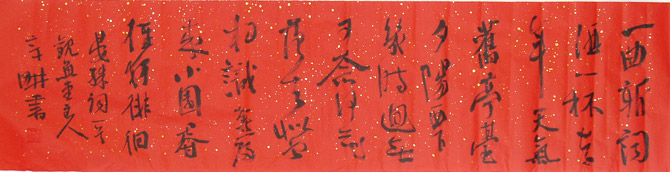 一曲新詞
酒一杯去
年天氣
舊亭臺
夕陽西下
幾時迴無
可奈何花
落去似曾
相識燕歸
來小園香
徑獨徘徊
晏殊詞一首
主人
書